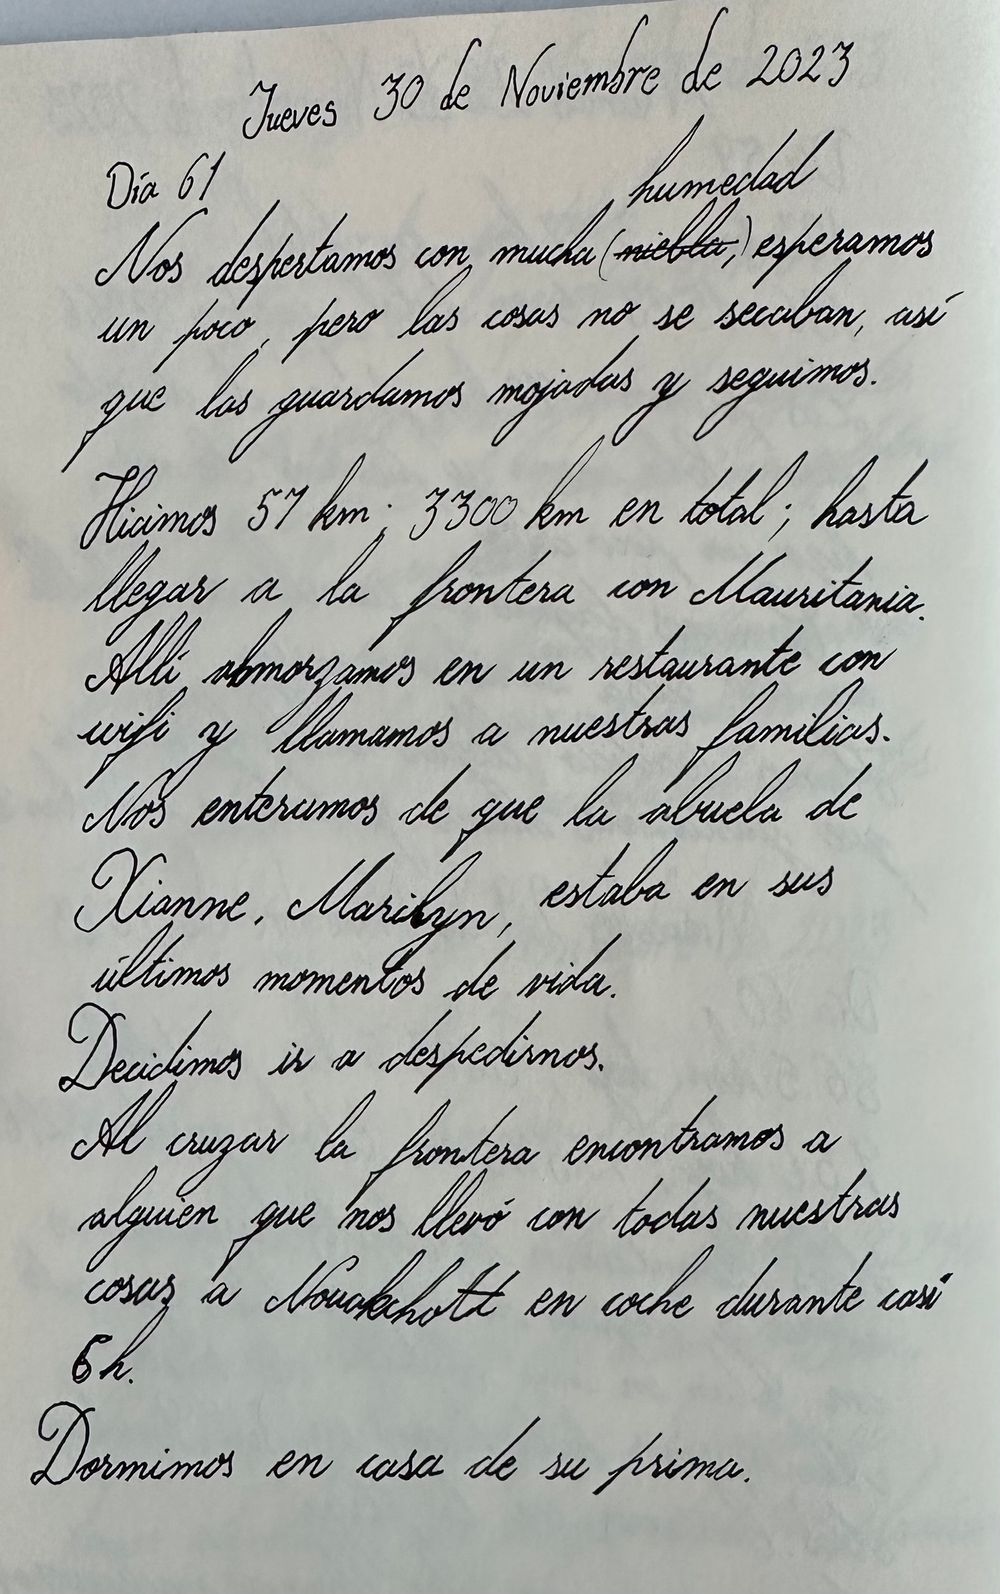 Jueves 30 de Noviembre de 2023
Día 61
humedad
Nos despertamos con mucha (niebla,) esperamos
un poco, pero las cosas no se secaban, así
que las guardamos mojadas y seguimos.
Hicimos 57 km; 3300 km en total; hasta
llegar a la frontera con Mauritania.
Allí almorzamos en un restaurante con
wifi y llamamos a nuestras familias.
Nos enteramos de que la abuela de
Xianne, Marilyn, estaba en sus
últimos momentos de vida.
Decidimos ir a despedirnos.
Al cruzar la frontera encontramos a
alguien que nos llevó con todas nuestras
cosas a Nouakchott en coche durante casi
6h.
Dormimos en casa de su prima.